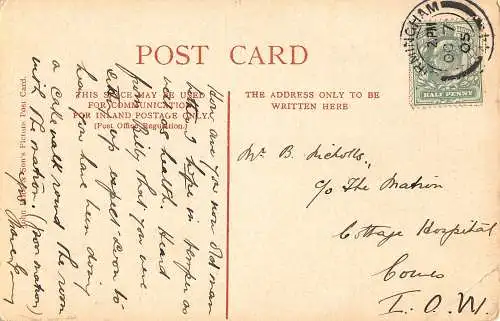 POST CARD
THIS SPACE MAY BE USED
FOR COMMUNICATION
FOR INLAND POSTAGE ONLY.
(Post Office Regulation.)
THE ADDRESS ONLY TO BE
WRITTEN HERE
HALF PENNY
2 PM
OC 7
05
Son's Picture Post Card.
How are you now old man
nothing hope in temper as
well as health. Heard
from Milly that you were
expect soon to
hear you have been doing
a cake walk round the room
with the matron. (poor matron)
Mr B. Nicholls,
c/o The Matron
Cottage Hospital
Cowes
I.O.W.